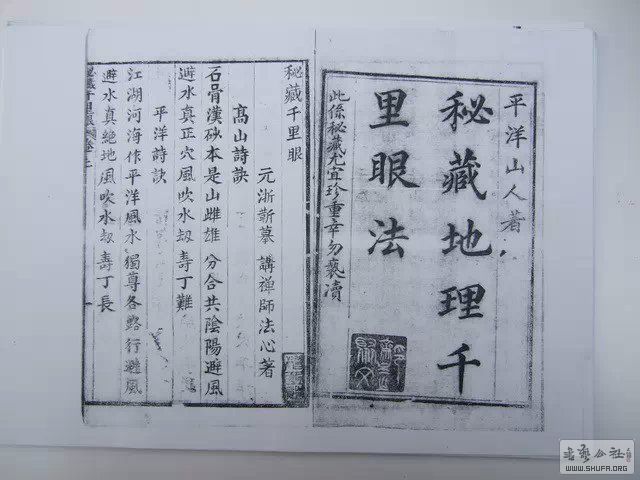 平洋山人著
秘藏地理千
里眼法
此係秘藏尤宜珍重幸勿褻瀆
秘藏千里眼
元浙靳摹 講禪師法心著
高山詩訣
石骨漢砂本是山雌雄 分合共陰陽避風
避水真正穴風吹水刼壽丁難
平洋詩訣
江湖河海作平洋風水 獨尊各路行避風
避水真絕地風吹水刼 壽丁長
WWW.SHUFA.ORG